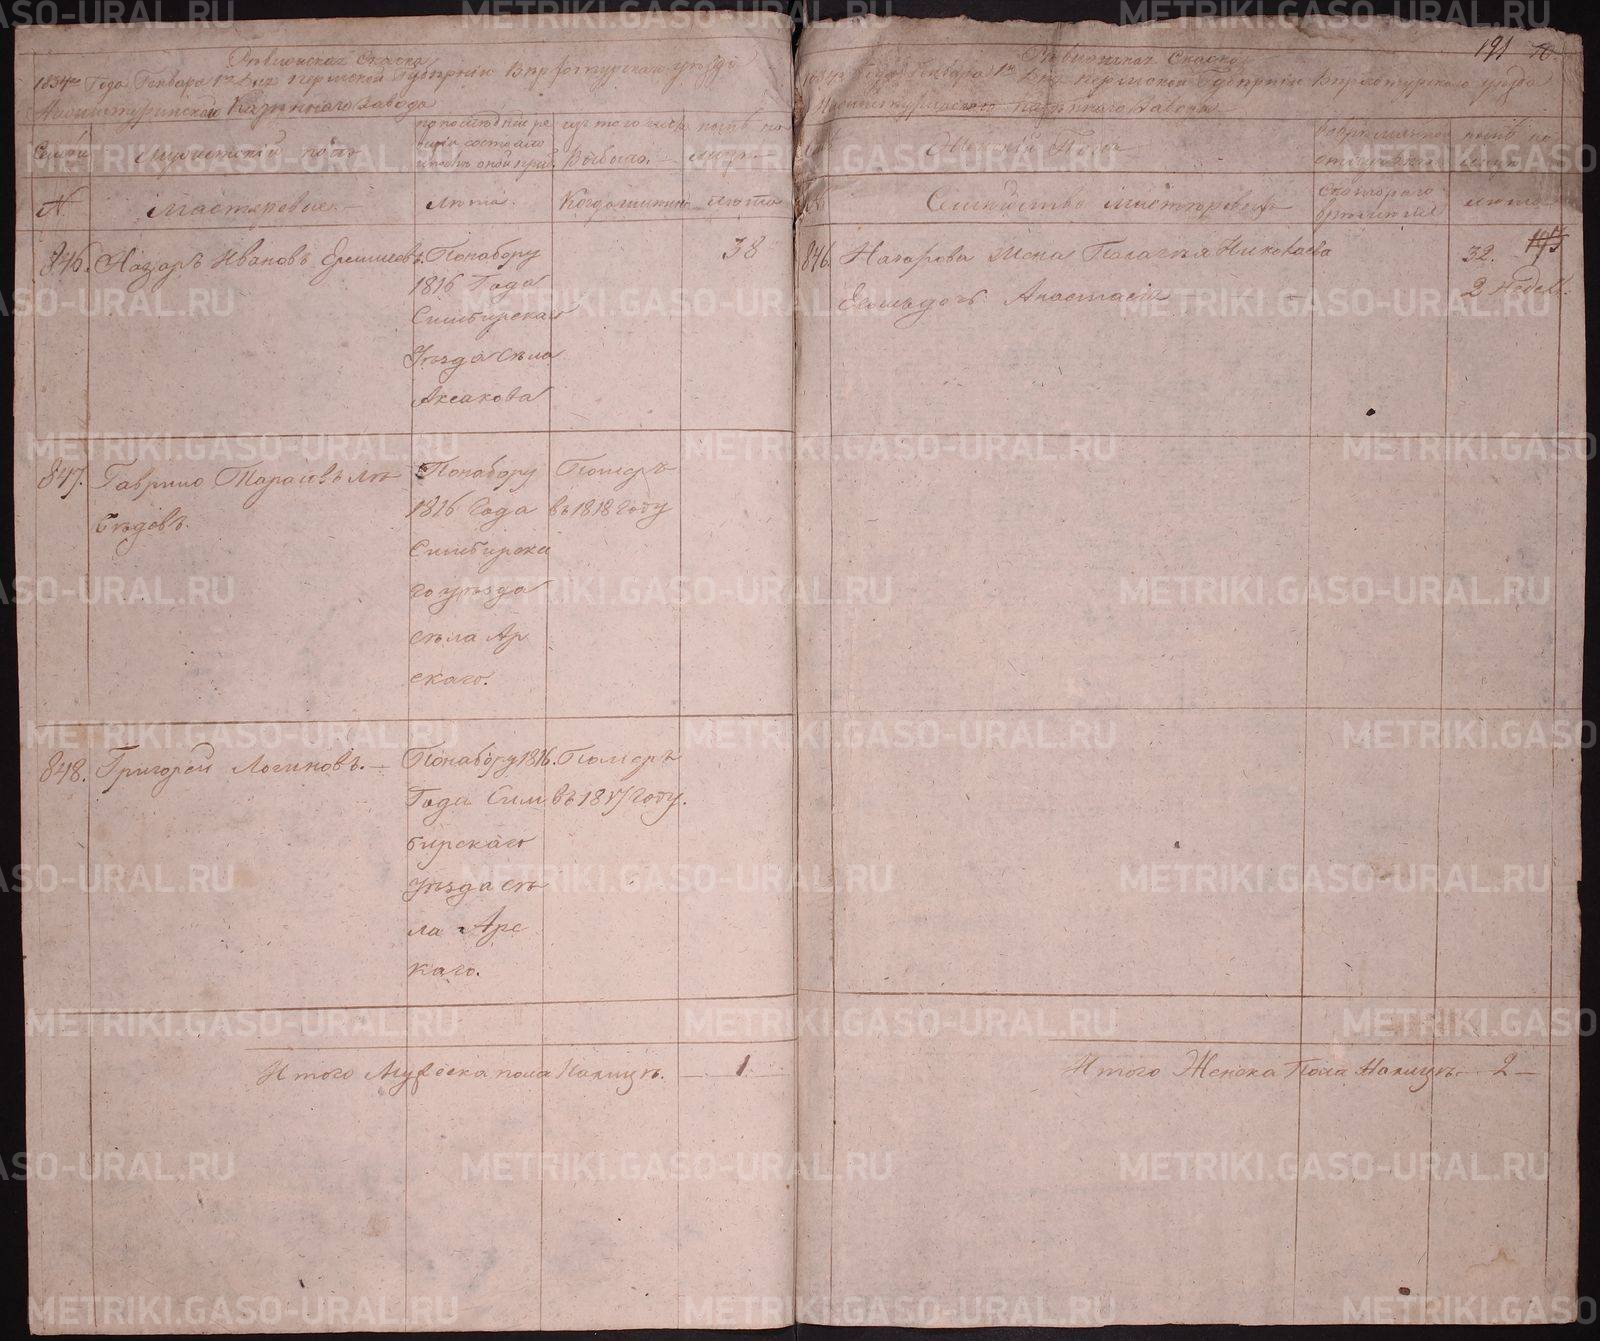 Ревизская Сказка
1834го Года Генваря 1го Дня Пермской Губернии Верхотурскаго уезда
Нижнетуринскаго Казеннаго Завода
Семьи
Мужеский полъ
по последней ре
визiи состояло
изъ того числа
Выбыло.
ныне на
лицо
№
Мастеровые.
лета.
Когда имянно
лета
846.
Назаръ Ивановъ
По набору
1816 Года
Симбирскаго
Уезда Села
Аксакова
38
847.
Гаврило Тарасовъ Ле
бедовъ.
По набору
1816 Года
Симбирска
го уезда
села Ар
скаго.
Померъ
въ 1818 году
848.
Григорей Логиновъ.
По набору 1816.
Года Сим
бирскаго
Уезда се
ла Арс
каго.
Померъ
въ 1817 году.
Итого Мужеска пола Налицо.
1
191
Ревизская Сказка
1834го Года Генваря 1го Дня Пермской Губернии Верхотурскаго уезда
Нижнетуринскаго Казеннаго Завода
Женский Полъ
во временной
отлучке
ныне на
лицо
№
Семейство Мастеровыхъ
съ котораго
времени
лета
846.
Назарова Жена Пелагея Николаева
32.
Ея дочь Анастасия
2 Недел.
Итого Женска Пола Налицо
2
METRIKI.GASO-URAL.RU